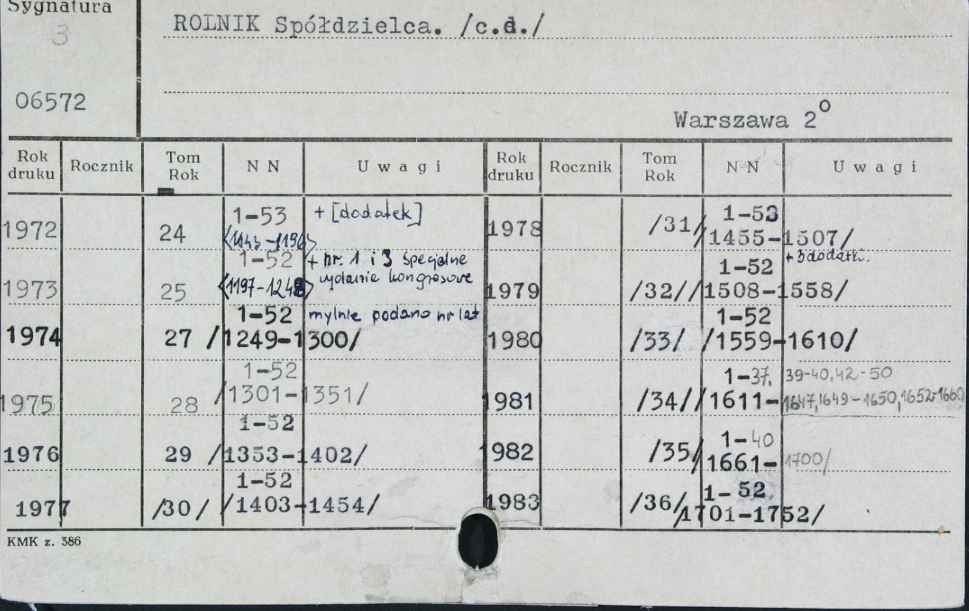 Sygnatura
3
06572
ROLNIK Spółdzielca. /c.d./
Warszawa 2°
Rok druku Rocznik Tom Rok N N Uwagi Rok druku Rocznik Tom Rok N N Uwagi
1972 24 1-53 + [dodatek]
<1143-1196>
1973 25 1-52 + nr. 1 i 3 specjalne
<1197-1248> wydanie kongresowe
1974 27 1-52 mylnie podano nr lat
/1249-1300/
1975 28 1-52
/1301-1351/
1976 29 1-52
/1353-1402/
1977 /30/ 1-52
/1403-1454/
1978 /31/ 1-53
/1455-1507/
1979 /32/ 1-52 + 3 dodatki.
/1508-1558/
1980 /33/ 1-52
/1559-1610/
1981 /34/ 1-37, 39-40, 42-50
/1611-1647, 1649-1650, 1652-1660
1982 /35/ 1-40
1661-1700/
1983 /36/ 1-52.
/1701-1752/
KMK z. 386